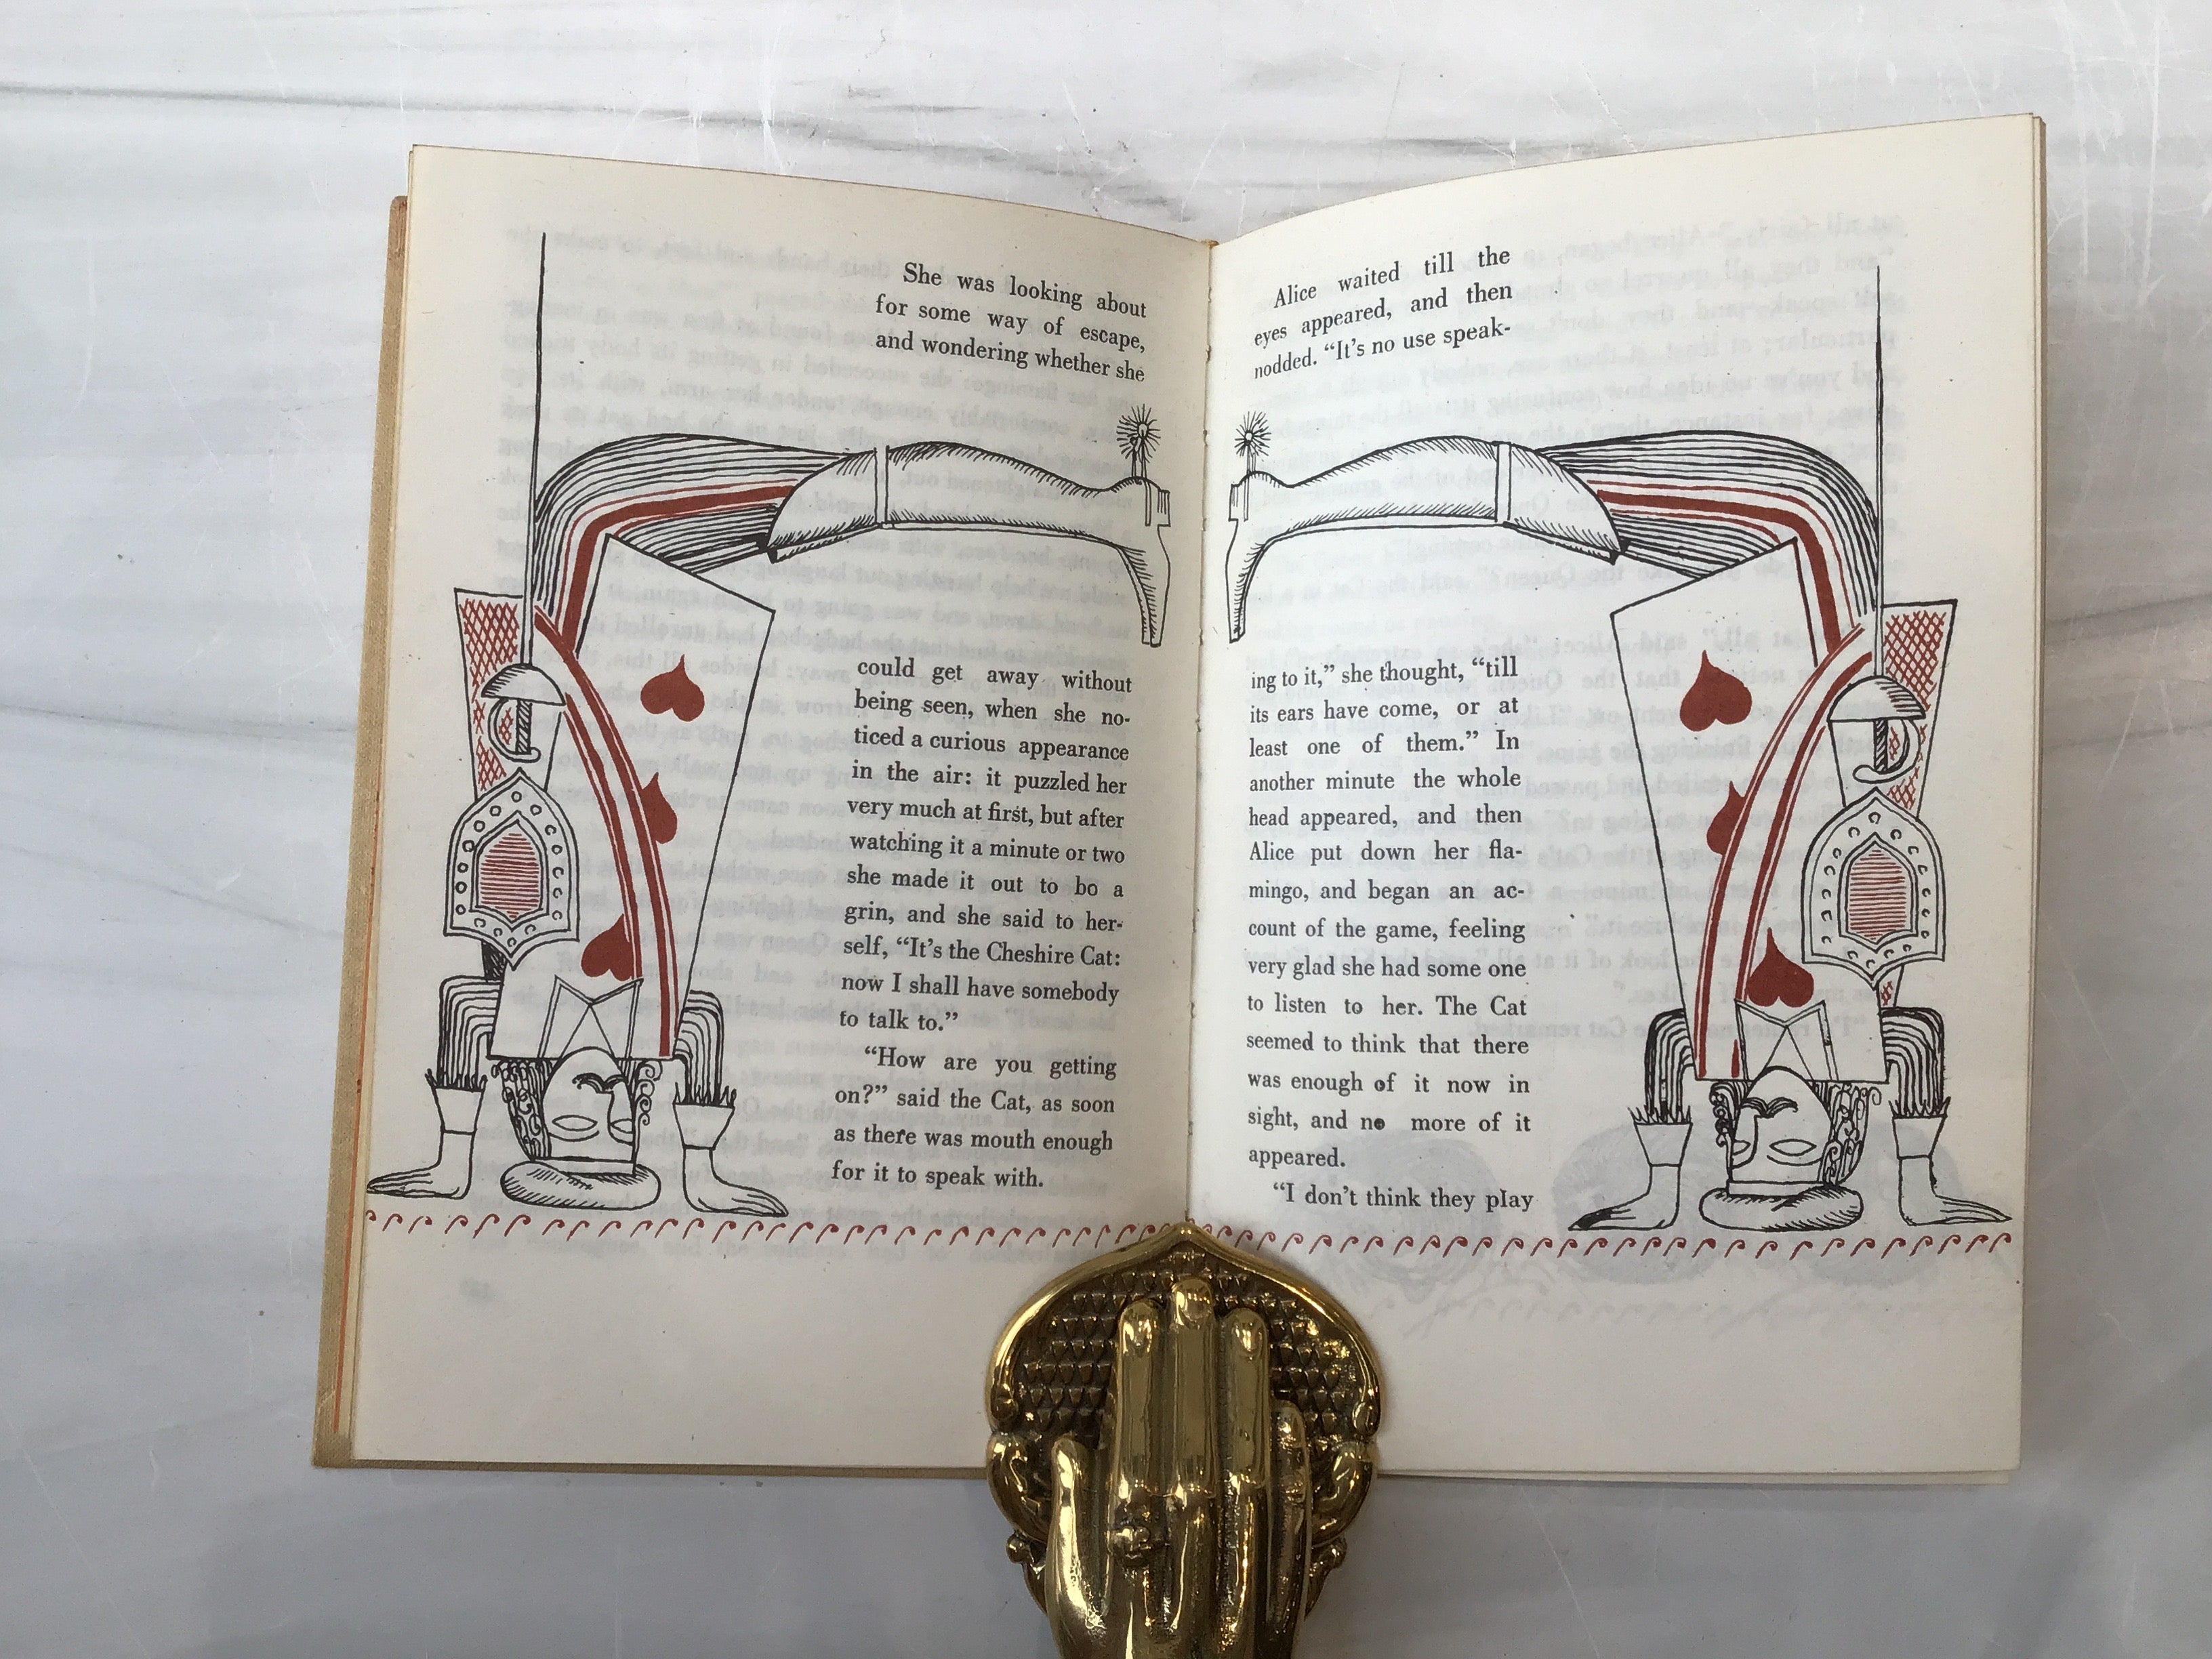 She was looking about
for some way of escape,
and wondering whether she
could get away without
being seen, when she no-
ticed a curious appearance
in the air: it puzzled her
very much at first, but after
watching it a minute or two
she made it out to bo a
grin, and she said to her-
self, “It’s the Cheshire Cat:
now I shall have somebody
to talk to.”
“How are you getting
on?” said the Cat, as soon
as there was mouth enough
for it to speak with.
Alice waited till the
eyes appeared, and then
nodded. “It’s no use speak-
ing to it,” she thought, “till
its ears have come, or at
least one of them.” In
another minute the whole
head appeared, and then
Alice put down her fla-
mingo, and began an ac-
count of the game, feeling
very glad she had some one
to listen to her. The Cat
seemed to think that there
was enough of it now in
sight, and no more of it
appeared.
“I don’t think they play